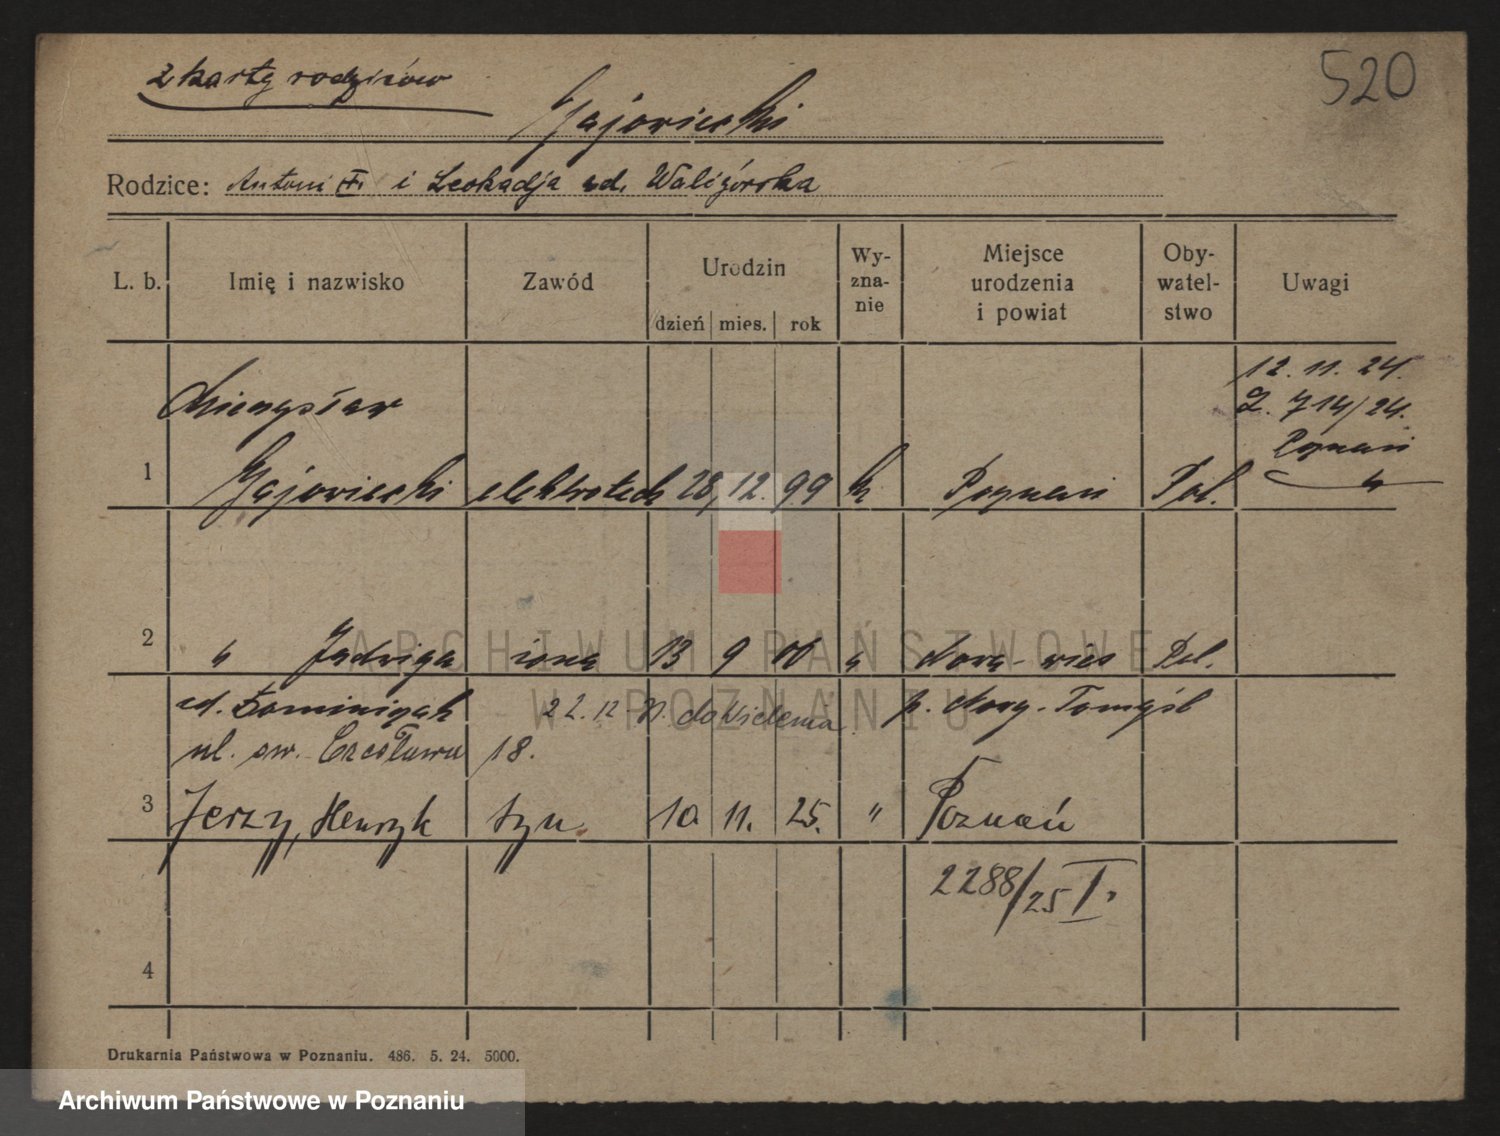 z karty rodziców
520
Gajowiecki
Rodzice: Antoni I. i Leokadja zd. Waligórska
L. b. Imię i nazwisko Zawód Urodzin dzień mies. rok Wy-zna-nie Miejsce urodzenia i powiat Oby-watel-stwo Uwagi
12. 11. 24.
Mieczysław
Z. 714/24.
Poznań
1 Gajowiecki elektrotech 28 12. 99 k Poznań Pol.
2 " Jadwiga żona 13 9 00 " Nowa-wieś Pol.
zd. Dominiczak 22.12 do Kielenia p. Nowy-Tomyśl
ul. św. Czesława 18.
3 Jerzy, Henryk syn 10 11. 25. " Poznań
2288/25 I.
4
Drukarnia Państwowa w Poznaniu. 486. 5. 24. 5000.
ARCHIWUM PAŃSTWOWE
W POZNANIU
Archiwum Państwowe w Poznaniu